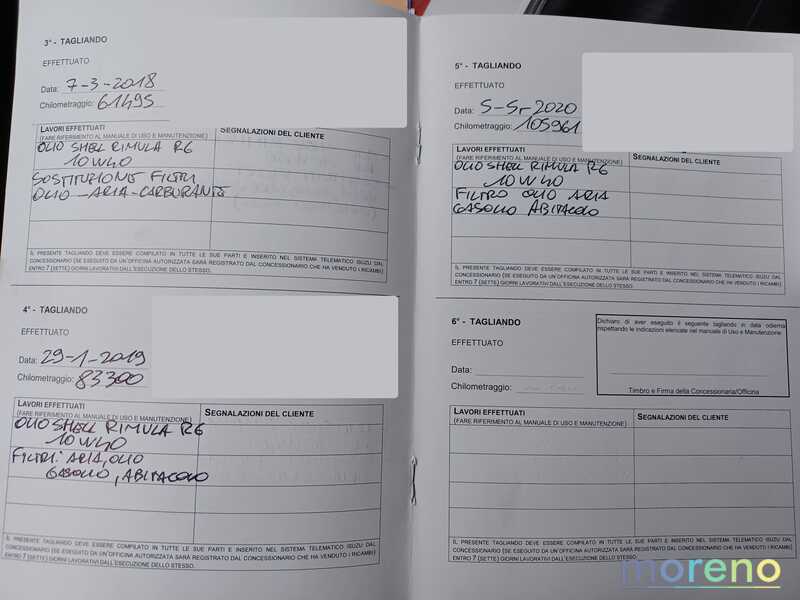 3° - TAGLIANDO
EFFETTUATO
Data: 7-3-2018
Chilometraggio: 61495
LAVORI EFFETTUATI
(FARE RIFERIMENTO AL MANUALE DI USO E MANUTENZIONE)
SEGNALAZIONI DEL CLIENTE
OLIO SHELL RIMULA R6
10W40
SOSTITUZIONE FILTRI
OLIO - ARIA - CARBURANTE
IL PRESENTE TAGLIANDO DEVE ESSERE COMPILATO IN TUTTE LE SUE PARTI E INSERITO NEL SISTEMA TELEMATICO ISUZU DAL
CONCESSIONARIO (SE ESEGUITO DA UN'OFFICINA AUTORIZZATA SARÀ REGISTRATO DAL CONCESSIONARIO CHE HA VENDUTO I RICAMBI)
ENTRO 7 (SETTE) GIORNI LAVORATIVI DALL'ESECUZIONE DELLO STESSO.
4° - TAGLIANDO
EFFETTUATO
Data: 29-1-2019
Chilometraggio: 83300
LAVORI EFFETTUATI
(FARE RIFERIMENTO AL MANUALE DI USO E MANUTENZIONE)
SEGNALAZIONI DEL CLIENTE
OLIO SHELL RIMULA R6
10W40
FILTRI: ARIA, OLIO
GASOLIO, ABITACOLO
IL PRESENTE TAGLIANDO DEVE ESSERE COMPILATO IN TUTTE LE SUE PARTI E INSERITO NEL SISTEMA TELEMATICO ISUZU DAL
CONCESSIONARIO (SE ESEGUITO DA UN'OFFICINA AUTORIZZATA SARÀ REGISTRATO DAL CONCESSIONARIO CHE HA VENDUTO I RICAMBI)
ENTRO 7 (SETTE) GIORNI LAVORATIVI DALL'ESECUZIONE DELLO STESSO.
5° - TAGLIANDO
EFFETTUATO
Data: 2020
Chilometraggio: 105961
LAVORI EFFETTUATI
(FARE RIFERIMENTO AL MANUALE DI USO E MANUTENZIONE)
SEGNALAZIONI DEL CLIENTE
OLIO SHELL RIMULA R6
10W40
FILTRO OLIO ARIA
GASOLIO ABITACOLO
IL PRESENTE TAGLIANDO DEVE ESSERE COMPILATO IN TUTTE LE SUE PARTI E INSERITO NEL SISTEMA TELEMATICO ISUZU DAL
CONCESSIONARIO (SE ESEGUITO DA UN'OFFICINA AUTORIZZATA SARÀ REGISTRATO DAL CONCESSIONARIO CHE HA VENDUTO I RICAMBI)
ENTRO 7 (SETTE) GIORNI LAVORATIVI DALL'ESECUZIONE DELLO STESSO.
6° - TAGLIANDO
EFFETTUATO
Data:
Chilometraggio:
Dichiaro di aver eseguito il seguente tagliando in data odierna
rispettando le indicazioni elencate nel manuale di Uso e Manutenzione:
Timbro e Firma della Concessionaria/Officina
LAVORI EFFETTUATI
(FARE RIFERIMENTO AL MANUALE DI USO E MANUTENZIONE)
SEGNALAZIONI DEL CLIENTE
IL PRESENTE TAGLIANDO DEVE ESSERE COMPILATO IN TUTTE LE SUE PARTI E INSERITO NEL SISTEMA TELEMATICO ISUZU DAL
CONCESSIONARIO (SE ESEGUITO DA UN'OFFICINA AUTORIZZATA SARÀ REGISTRATO DAL CONCESSIONARIO CHE HA VENDUTO I RICAMBI)
ENTRO 7 (SETTE) GIORNI LAVORATIVI DALL'ESECUZIONE DELLO STESSO.
moreno